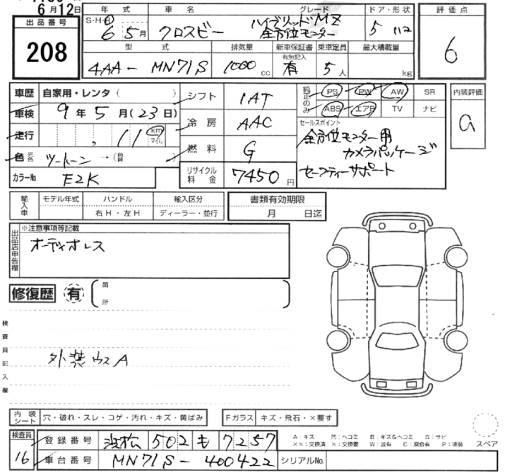 6月12日
出品番号
208
年式 車名 グレード ドア・形状 評価点
S・H・R 6年 5月 クロスビー ハイブリッドMZ 全方位モニター 5 ドア 6
型式 排気量 新車保証書 乗車定員 最大積載量
有別記入
4AA-MN71S 1000 cc 有 5人 kg
車歴 自家用・レンタ( ) シフト IAT
PS PW AW SR 内装評価
車検 9年5月(23日) 冷房 AAC
ABS エアB TV ナビ
a
走行 11 km マイル 燃料 G
セールスポイント
全方位モニター用
カメラパッケージ
セーフティーサポート
色 ツートーン→(
リサイクル料金 7450円
カラーNo E2K
輸入車 モデル年式 ハンドル 右H・左H 輸入区分 ディーラー・並行 書類有効期限 月 日迄
※注意事項等記載
出品店申告欄
オーディオレス
修復歴 有 箇所
検査員記入欄
外装ウスA
内装シート 穴・破れ・スレ・コゲ・汚れ・キズ・黄ばみ Fガラス キズ・飛石・×要す
検査員 16
登録番号 浜松 502 も 7257
車台番号 MN71S-400422 シリアルNo.
スペア